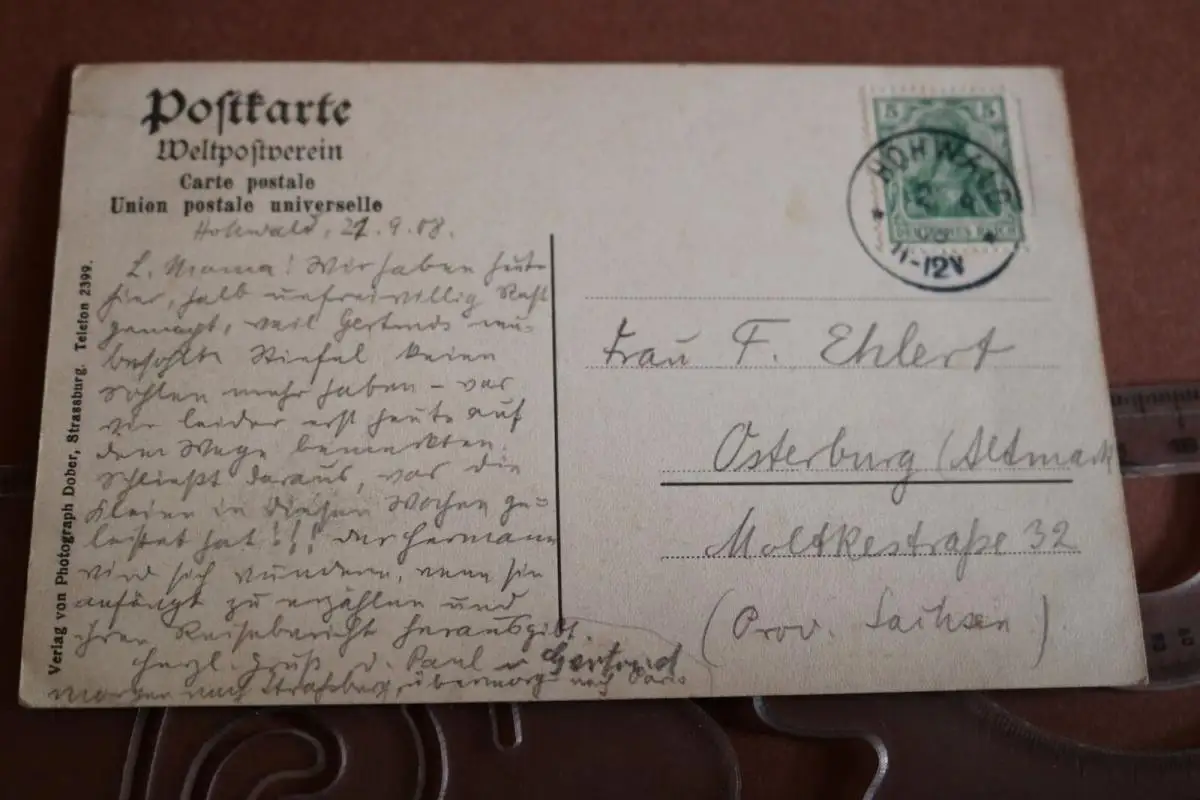 Postkarte
Weltpostverein
Carte postale
Union postale universelle
Hohwald, 21.9.08.
L. Mama! Wir haben heute
hier, halb unfreiwillig Rast
gemacht, weil Gertruds neu-
besohlte Stiefel keine
Sohlen mehr haben – was
wir leider erst heute auf
dem Wege bemerkten.
Schließt daraus, was die
Kleine in diesen Wochen ge-
leistet hat!!! Der Hermann
wird sich wundern, wenn sie
anfängt zu erzählen und
ihren Reisebericht herausgibt.
Herzl. Gruß v. Paul u Gertrud
morgen nach Straßburg, übermorg nach
Verlag von Photograph Dober, Strassburg. Telefon 2399.
5 5
DEUTSCHES REICH
HOHWALD
11-12V
Frau F. Ehlert
Osterburg (Altmark
Moltkestraße 32
(Prov. Sachsen)